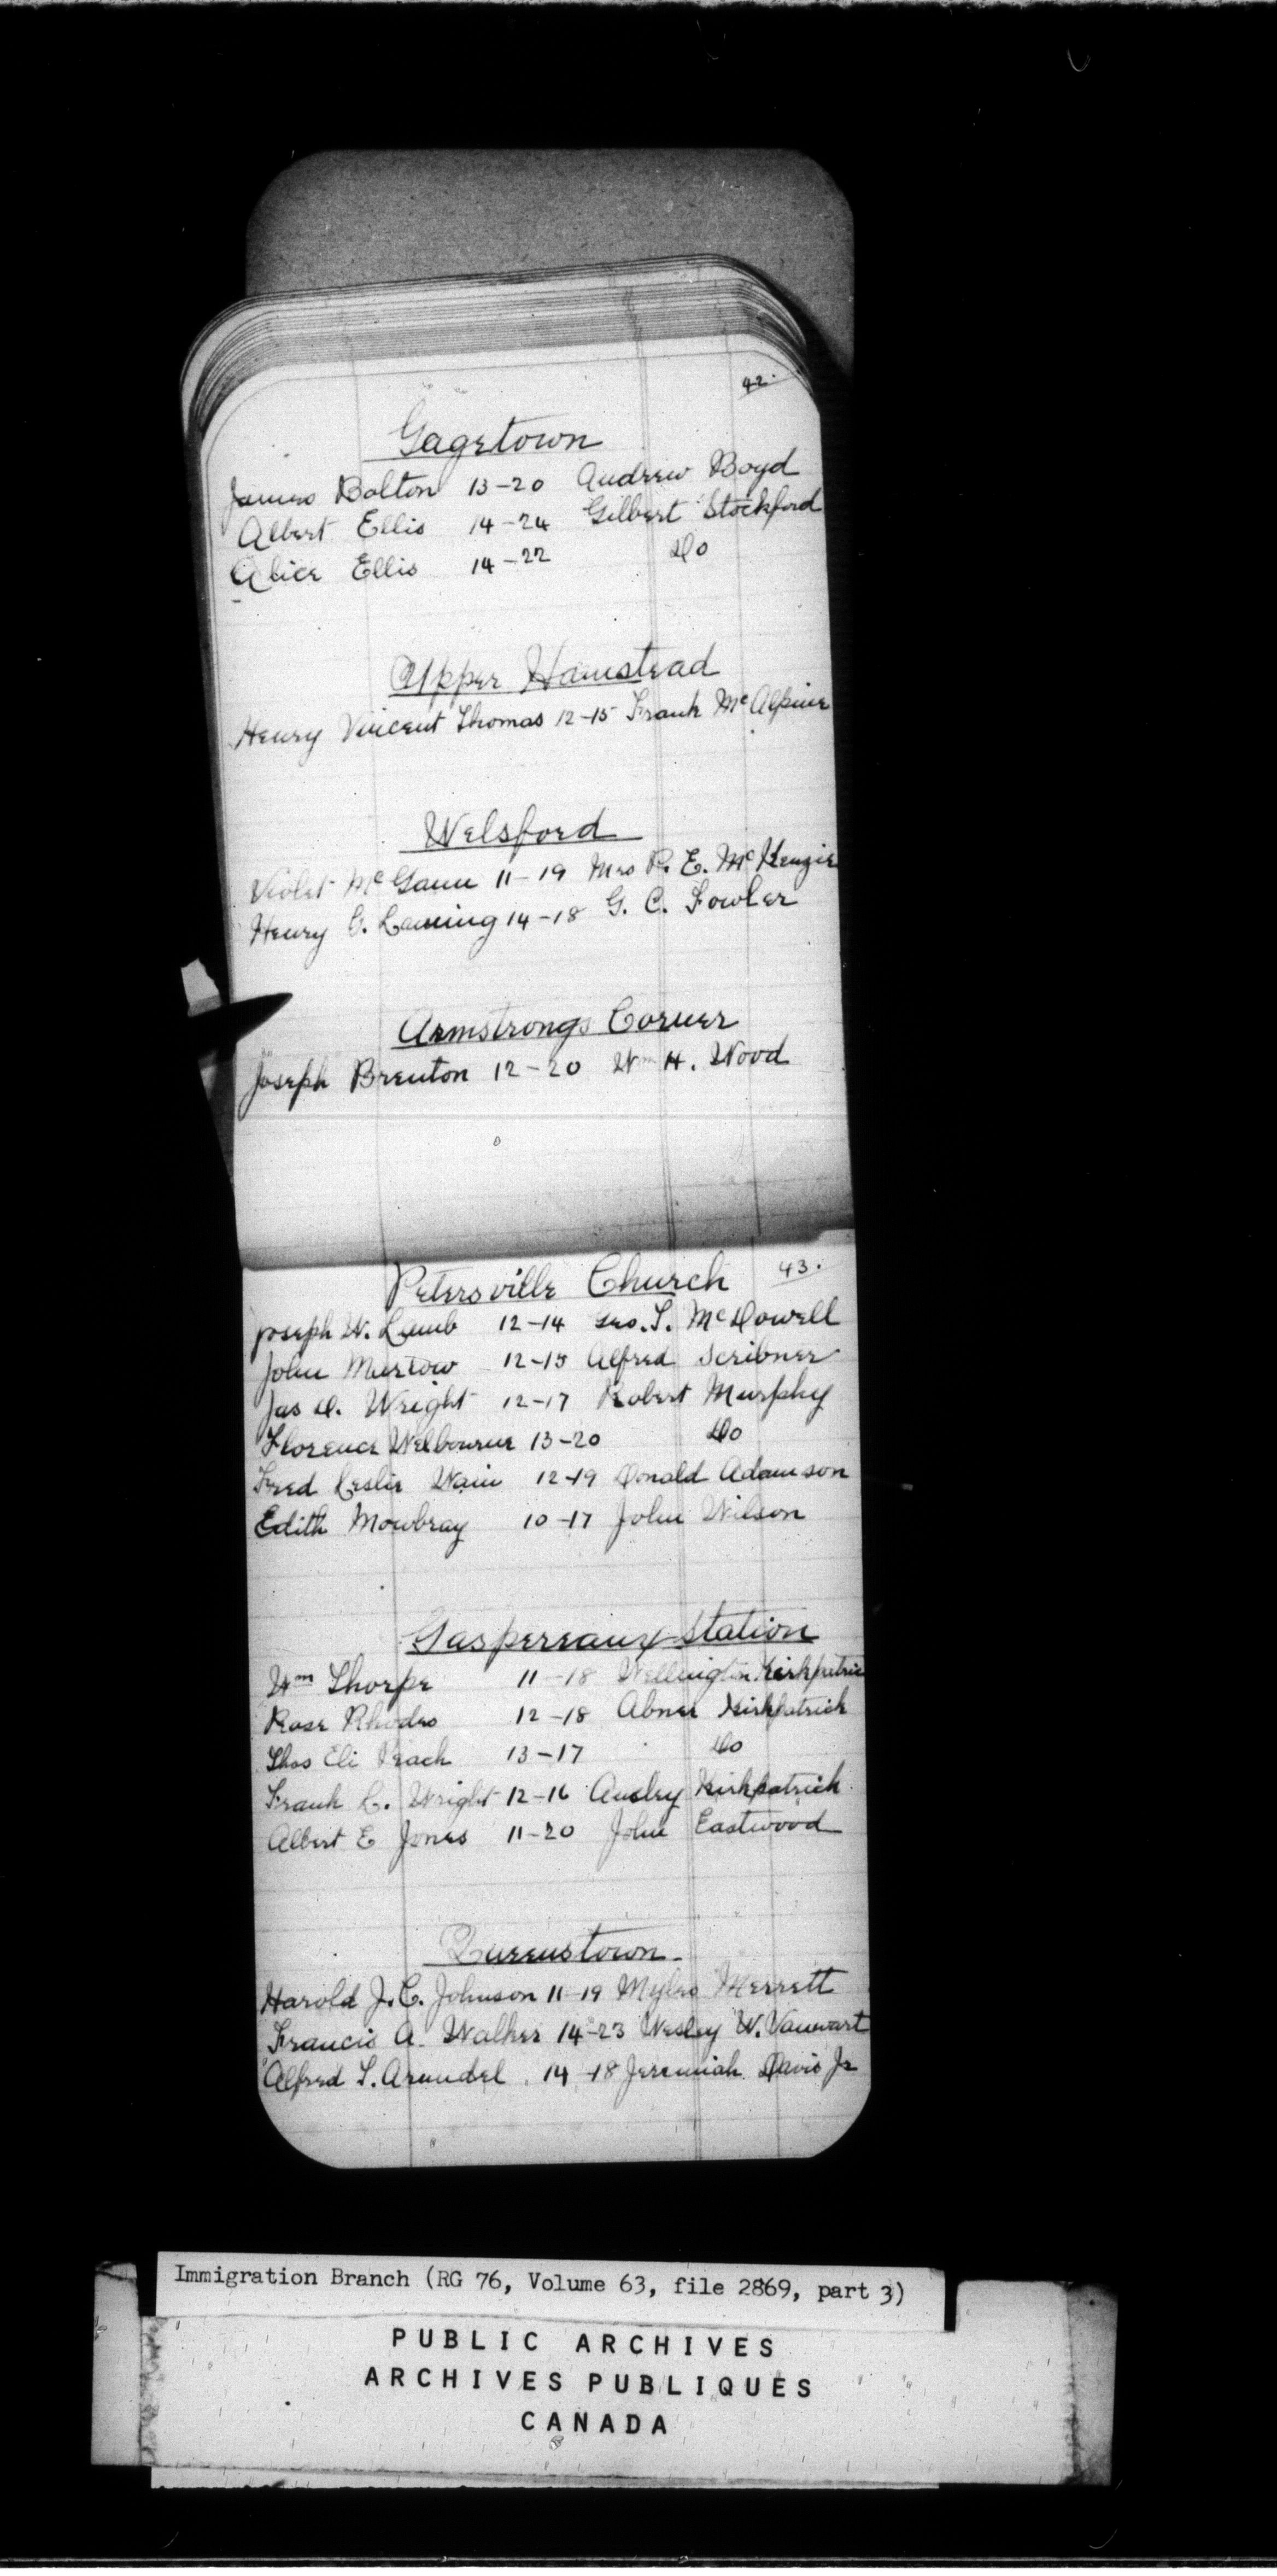 42.
Gagetown
James Bolton 13-20 Andrew Boyd
Albert Ellis 14-24 Gilbert Stockford
Alice Ellis 14-22 Do
Upper Hamstead
Henry Vincent Thomas 12-15 Frank McAlpine
Welsford
Violet McGann 11-19 Mrs R. E. McKenzie
Henry G. Laming 14-18 G. C. Fowler
Armstrongs Corner
Joseph Brenton 12-20 Wm H. Wood
Petersville Church 43.
Joseph W. Lumb 12-14 Geo. S. McDowell
John Murtow 12-15 Alfred Scribner
Jas D. Wright 12-17 Robert Murphy
Florence Welbourne 13-20 Do
Fred Leslie Wain 12-19 Donald Adamson
Edith Mowbray 10-17 John Wilson
Gaspereaux Station
Wm Thorpe 11-18 Wellington Kirkpatric
Rose Rhodes 12-18 Abner Kirkpatrick
Thos Eli Peach 13-17 Do
Frank L. Wright 12-16 Ausley Kirkpatrick
Albert E Jones 11-20 John Eastwood
Queenstown
Harold J. C. Johnson 11-19 Myles Merrett
Francis A. Walker 14-23 Wesley W. Vanwart
Alfred T. Arundel 14-18 Jeremiah Davis Jr
Immigration Branch (RG 76, Volume 63, file 2869, part 3)
PUBLIC ARCHIVES
ARCHIVES PUBLIQUES
CANADA